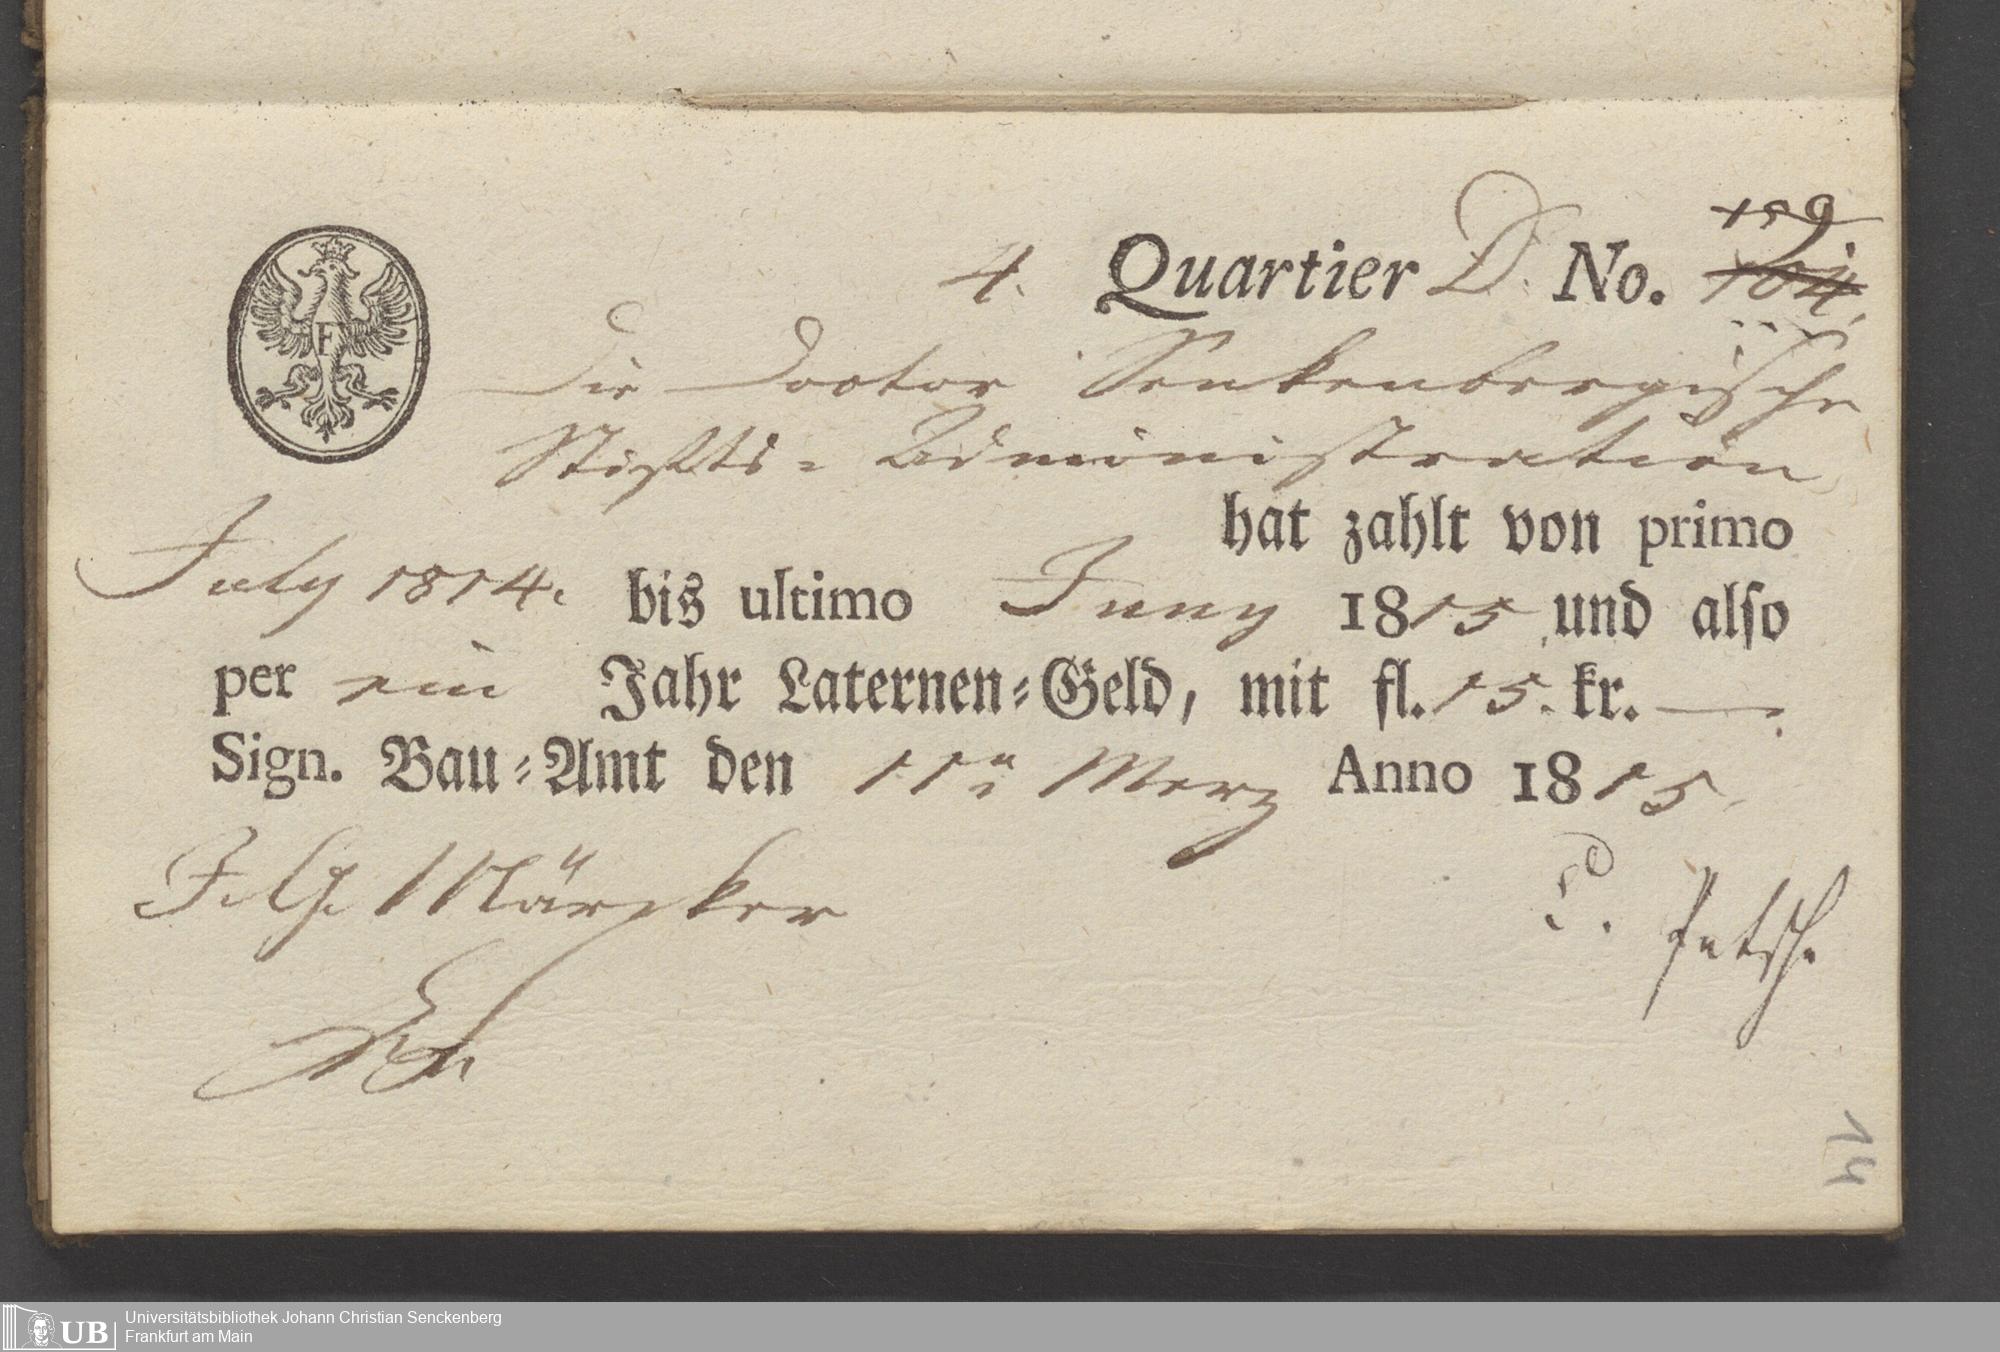 159
4. Quartier D. No. 104.
Die Doctor Senkenbergische
Stiffts-Administration
hat zahlt von primo
July 1814. bis ultimo Juny 1815 und also
per ein Jahr Laternen-Geld, mit fl. 15. kr. —.
Sign. Bau-Amt den 11n Merz Anno 1815.
J. G. Märcker
F
14
UB
Universitätsbibliothek Johann Christian Senckenberg
Frankfurt am Main